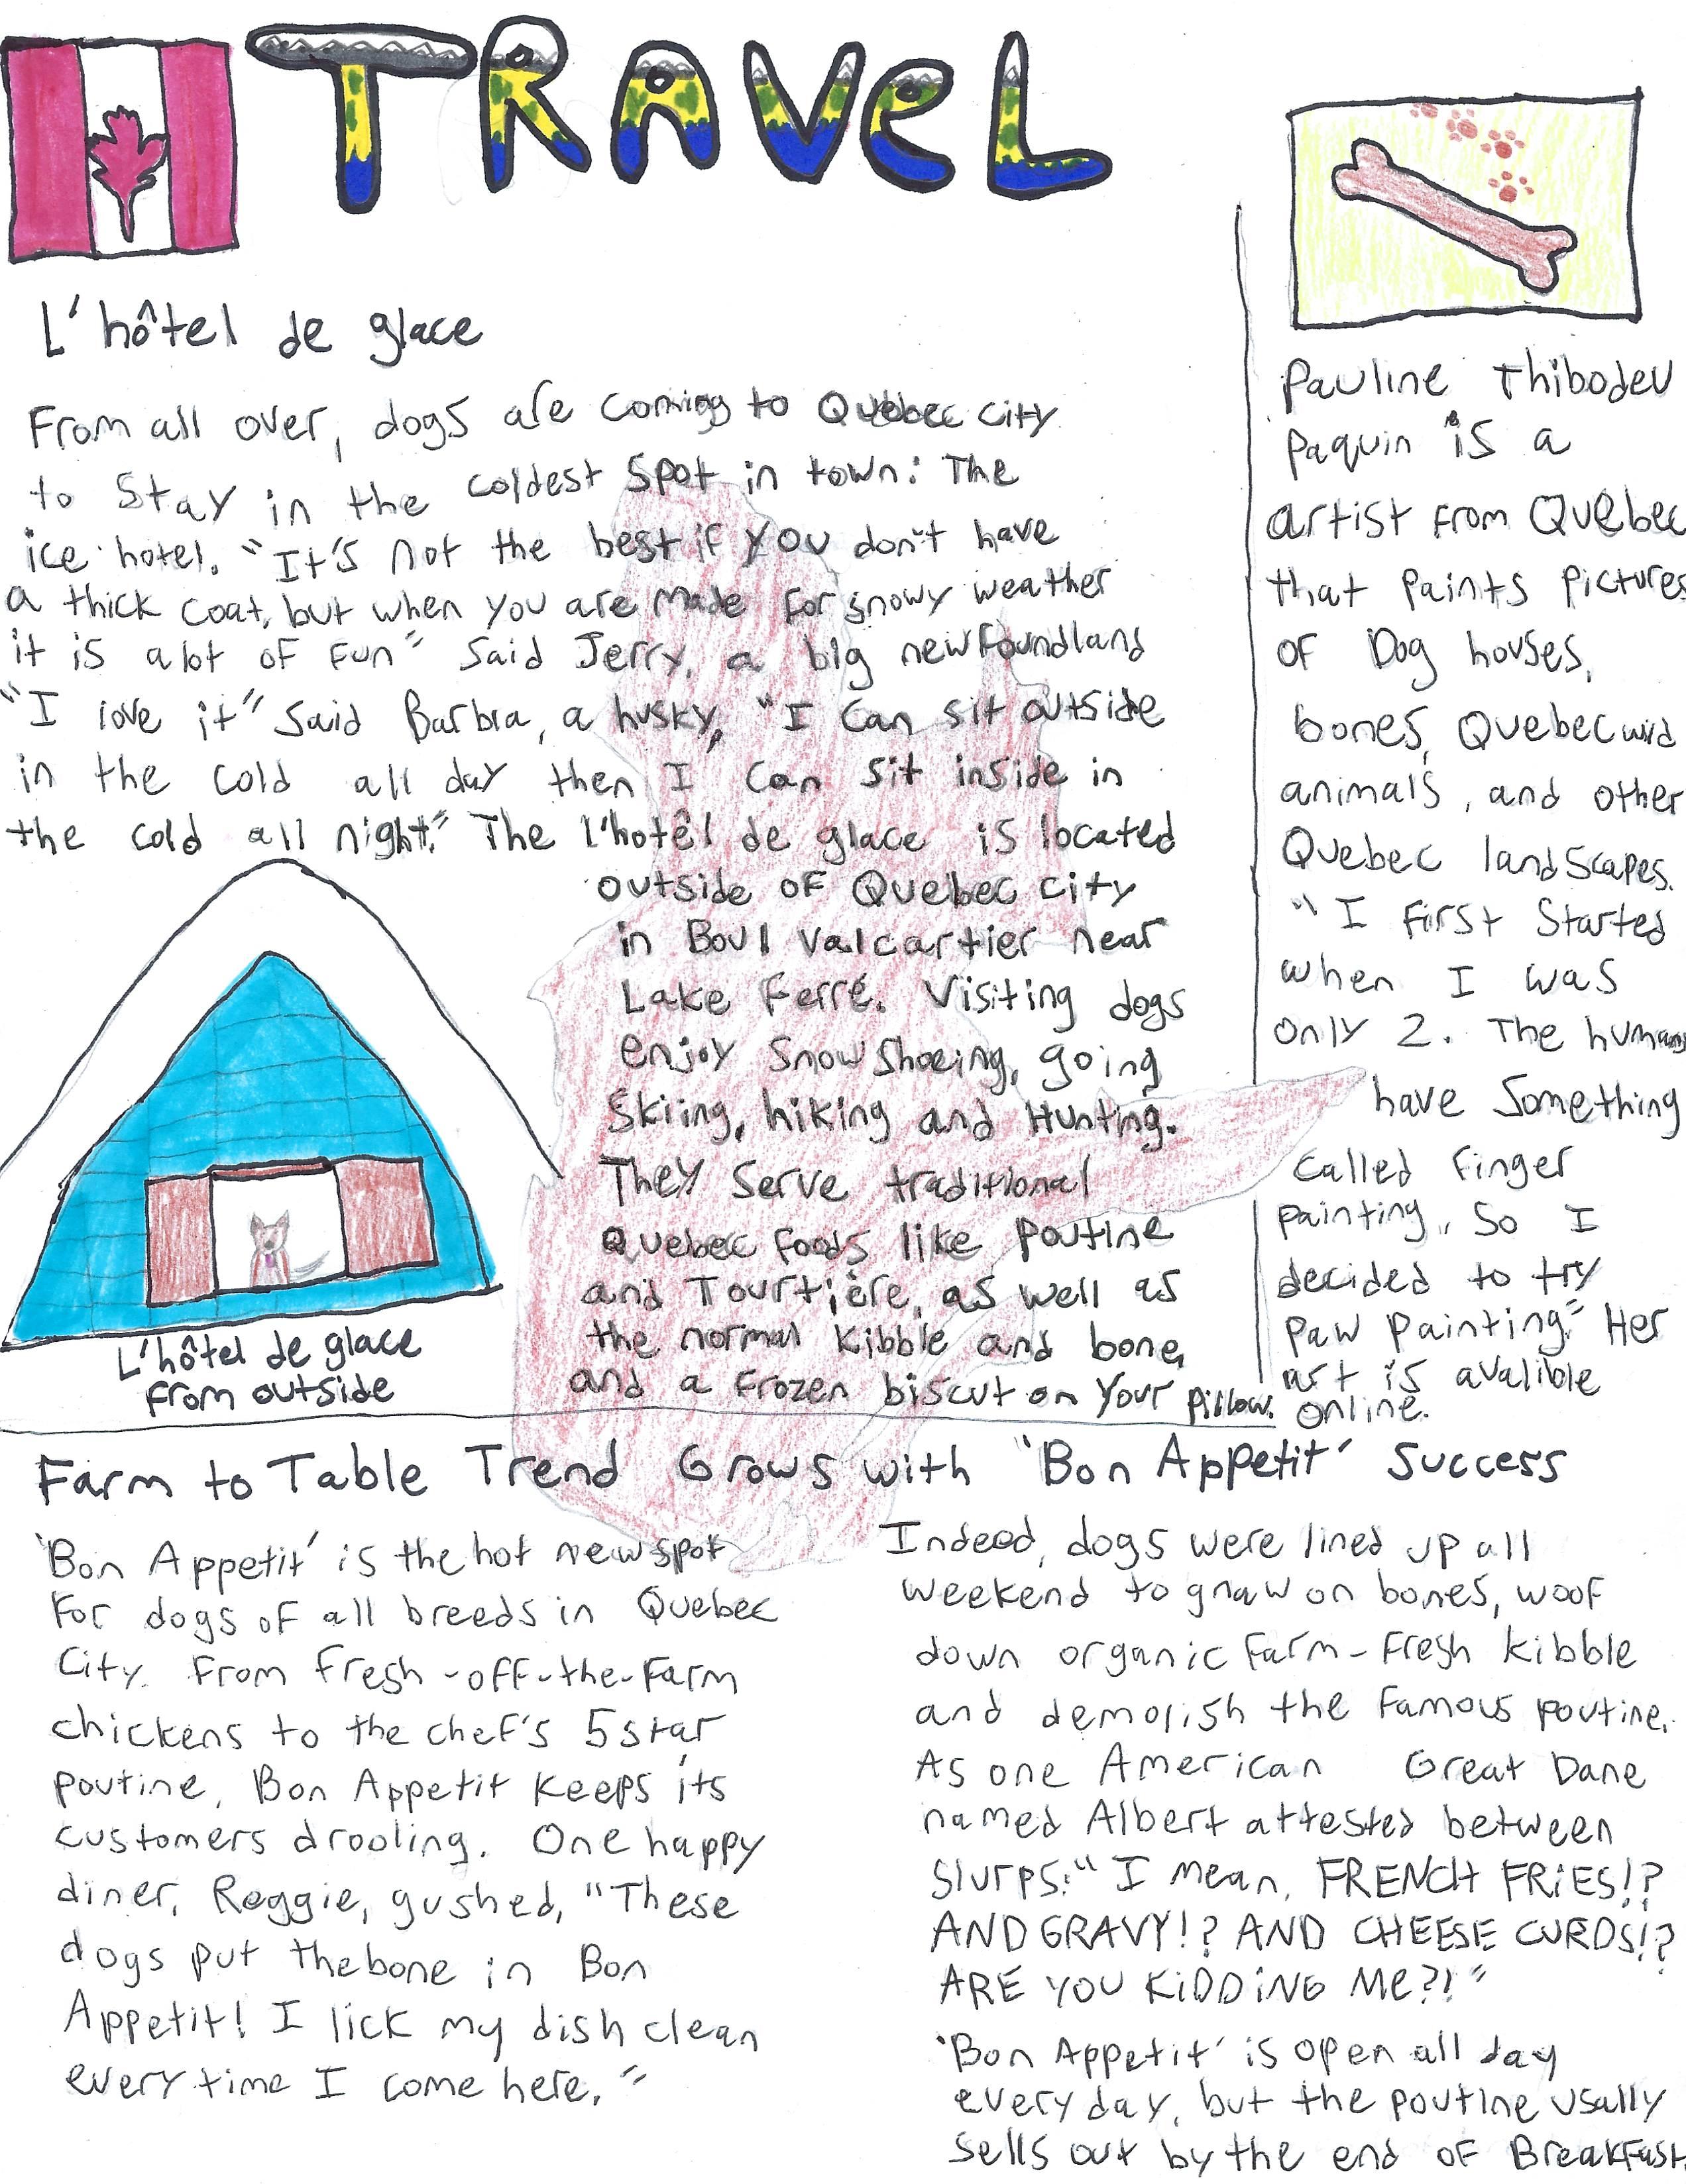 TRAVEL
L'hôtel de glace
From all over, dogs are coming to Quebec City
to stay in the coldest spot in town: The
ice hotel. "It's not the best if you don't have
a thick coat, but when you are made for snowy weather
it is a lot of fun" said Jerry, a big newfoundland
"I love it" said Barbra, a husky, "I can sit outside
in the cold all day then I can sit inside in
the cold all night." The l'hotêl de glace is located
outside of Quebec City
in Boul Valcartier near
Lake Ferré. Visiting dogs
enjoy snowshoeing, going
skiing, hiking and Hunting.
They serve traditional
Quebec foods like poutine
and Tourtière, as well as
the normal kibble and bone,
and a frozen biscut on your pillow.
L'hôtel de glace
from outside
Pauline Thibodeu
Paquin is a
artist from Quebec
that paints pictures
of Dog houses,
bones, Quebec wild
animals, and other
Quebec landscapes.
"I first started
when I was
only 2. The humans
have something
called finger
painting, so I
decided to try
paw painting." Her
art is avalible
online.
Farm to Table Trend Grows with 'Bon Appetit' Success
'Bon Appetit' is the hot new spot
for dogs of all breeds in Quebec
City. From fresh-off-the-farm
chickens to the chef's 5 star
poutine, Bon Appetit keeps its
customers drooling. One happy
diner, Reggie, gushed, "These
dogs put the bone in Bon
Appetit! I lick my dish clean
every time I come here."
Indeed, dogs were lined up all
weekend to gnaw on bones, woof
down organic farm-fresh kibble
and demolish the famous poutine.
As one American Great Dane
named Albert attested between
slurps: "I mean, FRENCH FRIES!?
AND GRAVY!? AND CHEESE CURDS!?
ARE YOU KIDDING ME?!"
'Bon Appetit' is open all day
every day, but the poutine usally
sells out by the end of Breakfast.